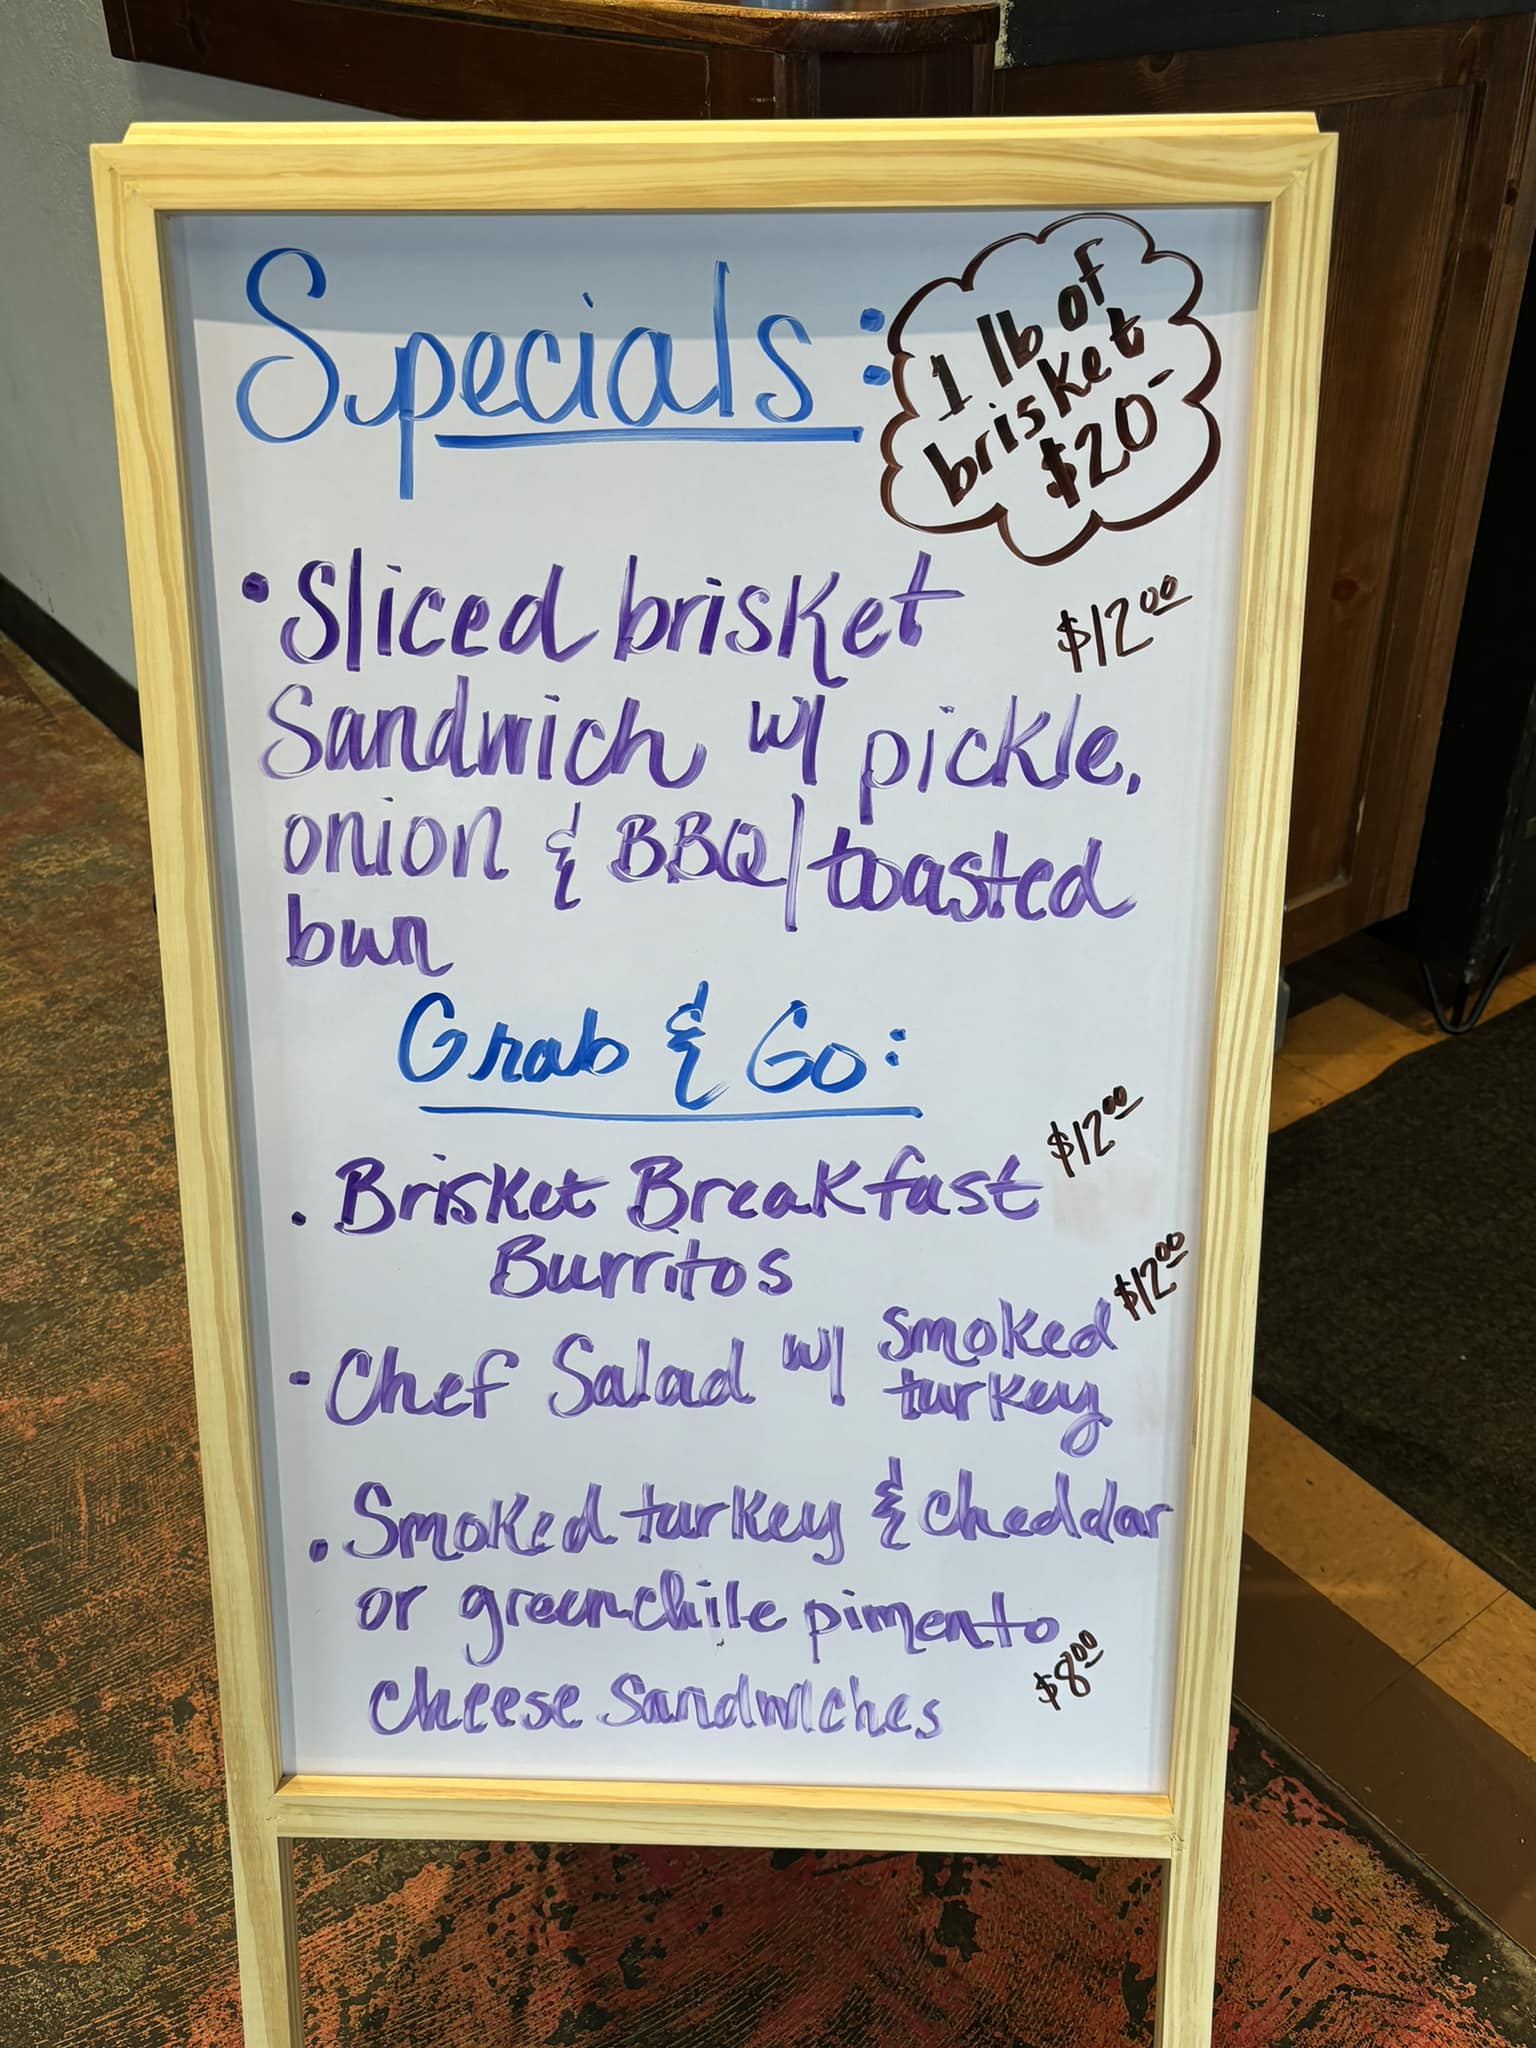 Specials:
1 lb of
brisket
$20-
• Sliced brisket $12.00
Sandwich w/ pickle,
onion & BBQ/toasted
bun
Grab & Go:
• Brisket Breakfast $12.00
Burritos
• Chef Salad w/ smoked $12.00
turkey
• Smoked turkey & cheddar
or green chile pimento
cheese Sandwiches $8.00